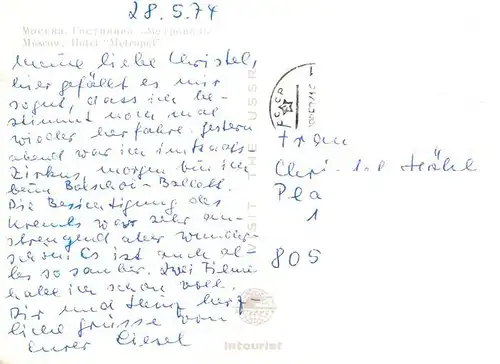 28.5.74
Москва. Гостиница «Метрополь»
Moscow. Hotel "Metropol"
Meine liebe Christel,
hier gefällt es mir
so gut, dass ich be-
stimmt noch mal
wieder herfahre. Gestern
abend war ich im Staats-
Zirkus, morgen bin ich
beim Bolschoi-Ballett.
Die Besichtigung des
Kremls war sehr an-
strengend aber wunder-
schön. Es ist auch al-
les so sauber. Zwei Filme
habe ich schon voll.
Dir und Heinz herz-
liche Grüsse von
Eurer Liesel
VISIT THE USSR
Intourist
Frau
Christel
1
805